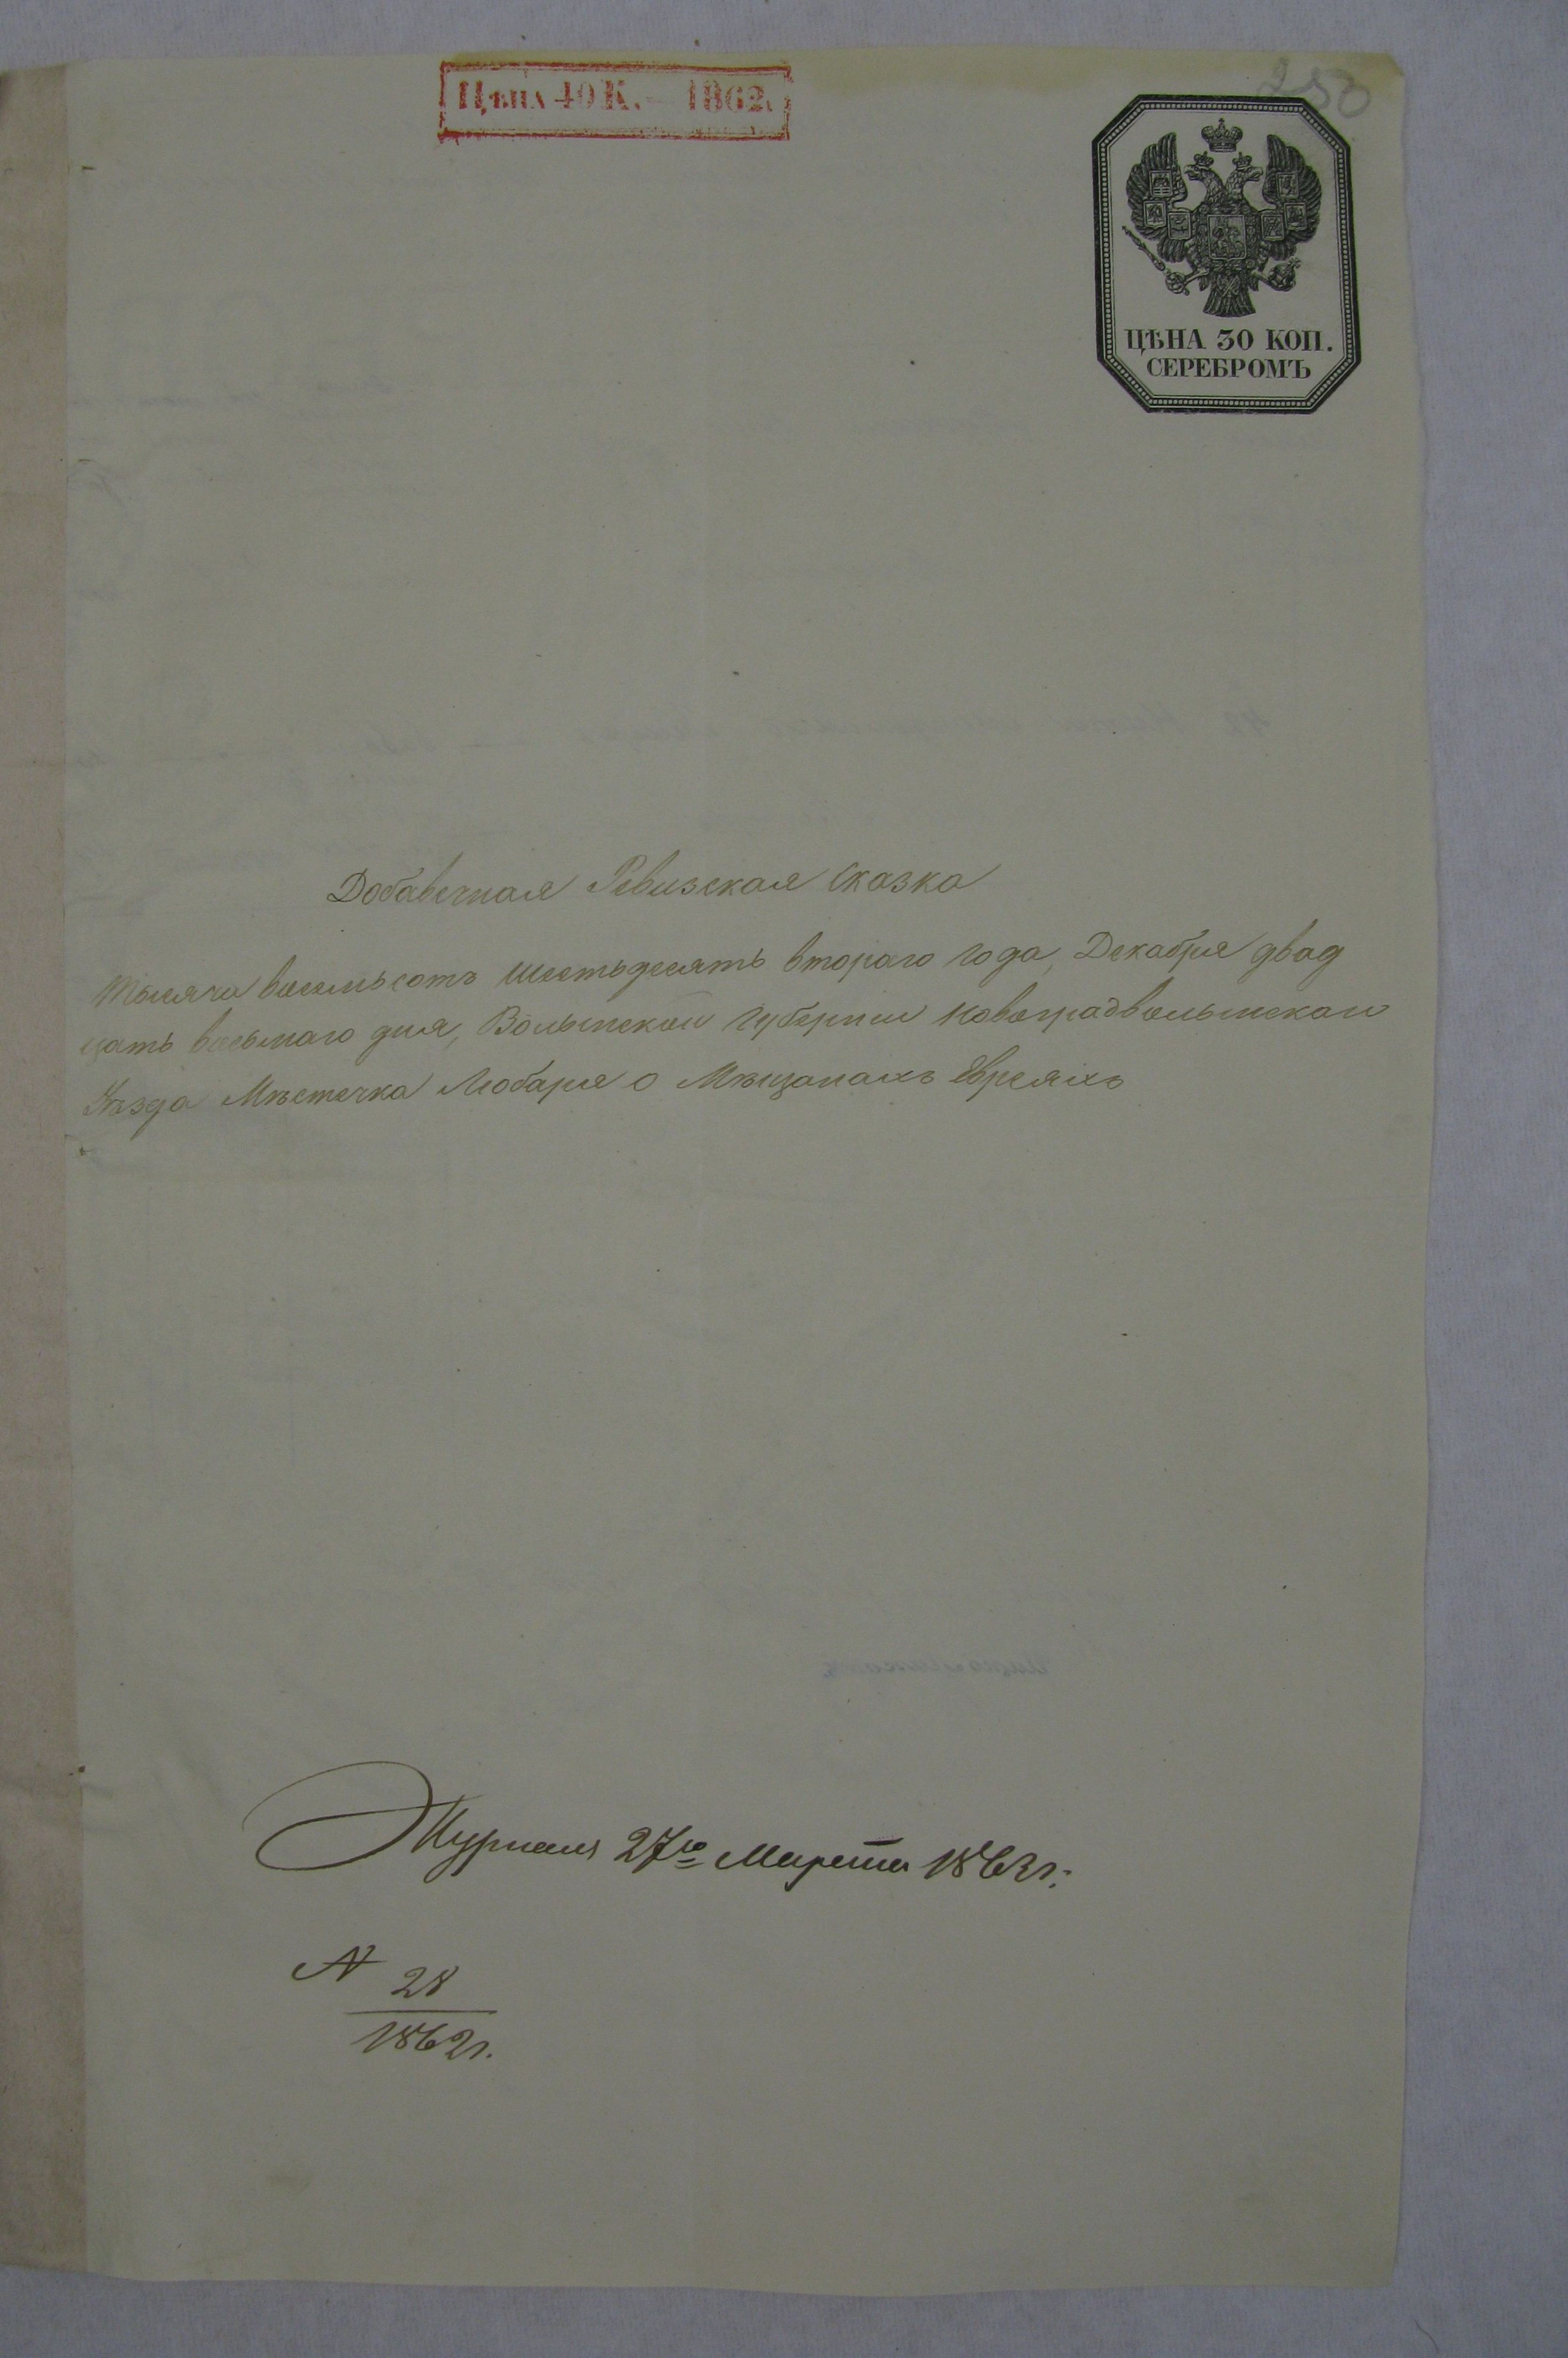 Цѣна 40 К. — 1862.
258
ЦѢНА 30 КОП.
СЕРЕБРОМЪ
Добавочная Ревизская Сказка
Тысяча восемьсотъ шестьдесятъ втораго года, Декабря двад
цать восьмаго дня, Волынской Губерніи Новоградволынскаго
Уѣзда Мѣстечка Любаря о Мѣщанахъ Евреяхъ
Журналъ 27го Марта 1863 г.
N 28
1862 г.